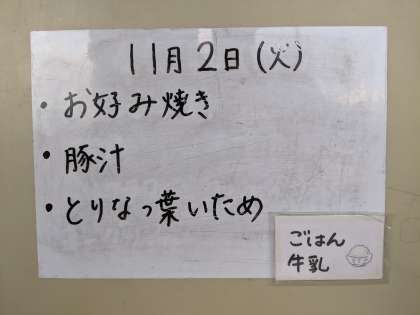 11月2日(火)
・お好み焼き
・豚汁
・とりなっ葉いため
ごはん
牛乳